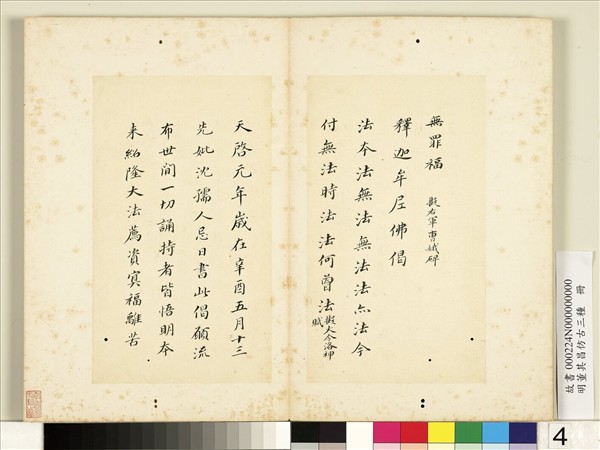 無罪福 擬右軍曹娥碑
釋迦牟尼佛偈
法本法無法無法法亦法今
付無法時法法何曾法擬大令洛神賦
天啓元年歲在辛酉五月十三
先妣沈孺人忌日書此偈願流
布世間一切誦持者皆悟明本
来紹隆大法薦資冥福離苦
故書000224N000000000
明董其昌仿古三種 冊
4